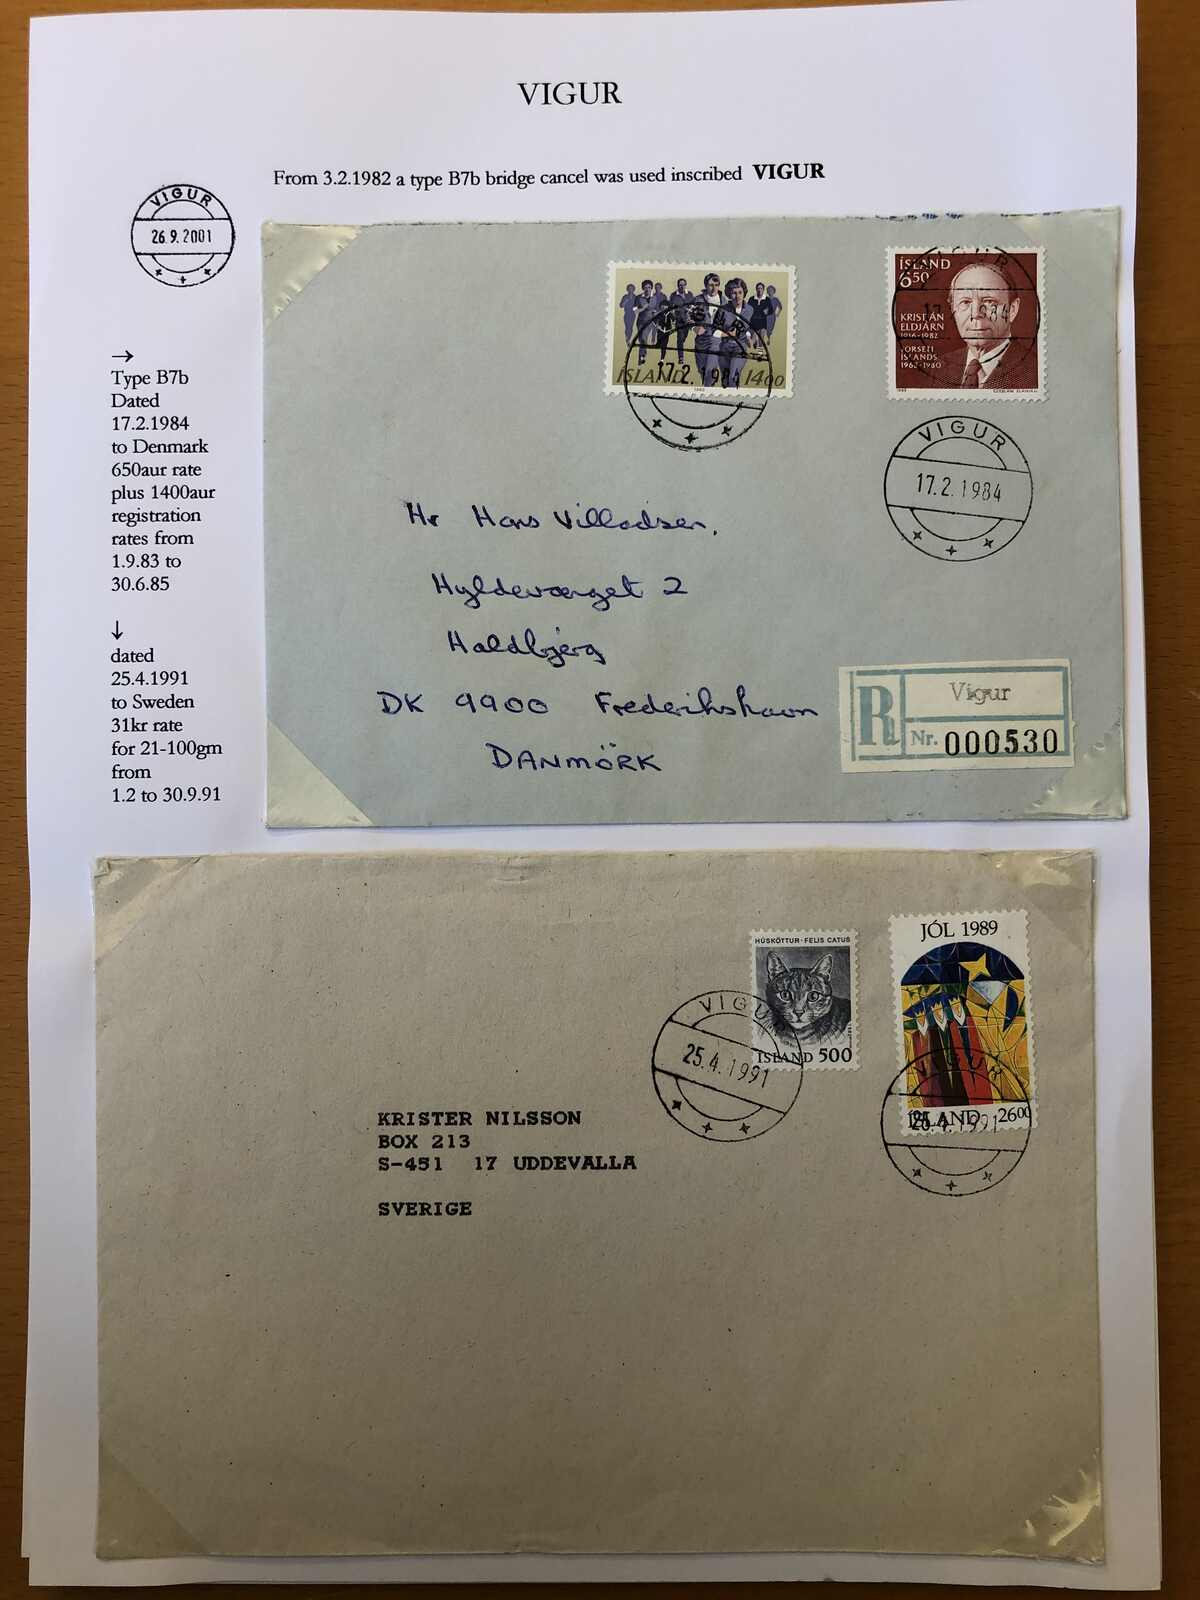 VIGUR
From 3.2.1982 a type B7b bridge cancel was used inscribed VIGUR
VIGUR
26.9.2001
→
Type B7b
Dated
17.2.1984
to Denmark
650aur rate
plus 1400aur
registration
rates from
1.9.83 to
30.6.85
↓
dated
25.4.1991
to Sweden
31kr rate
for 21-100gm
from
1.2 to 30.9.91
ÍSLAND 1400
1983
VIGUR
17.2.1984
ÍSLAND
650
KRISTJÁN
ELDJÁRN
1916-1982
FORSETI
ÍSLANDS
1968-1980
VIGUR
17.2.1984
VIGUR
17.2.1984
Hr Hans Villadsen,
Hyldevænget 2
Haldbjerg
DK 9900 Frederikshavn
DANMÖRK
R
Vigur
Nr. 000530
HÚSKÖTTUR · FELIS CATUS
ÍSLAND 500
VIGUR
25.4.1991
JÓL 1989
ÍSLAND 2600
VIGUR
25.4.1991
KRISTER NILSSON
BOX 213
S-451 17 UDDEVALLA
SVERIGE